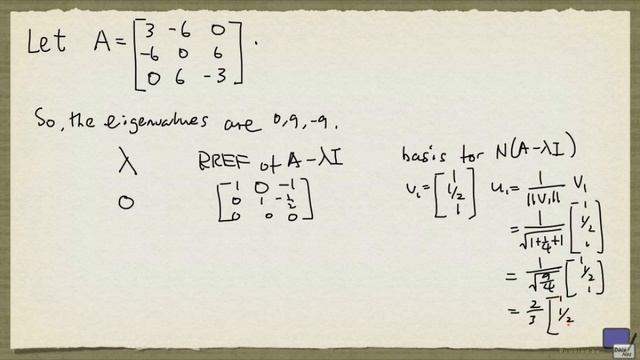 Let A = [3 -6 0; -6 0 6; 0 6 -3].
So, the eigenvalues are 0, 9, -9.
λ RREF of A - λI basis for N(A - λI)
0 [1 0 -1; 0 1 -1/2; 0 0 0] v₁ = [1; 1/2; 1] u₁ = 1/||v₁|| v₁
= 1/√(1+1/4+1) [1; 1/2; 1]
= 1/√(9/4) [1; 1/2; 1]
= 2/3 [1; 1/2